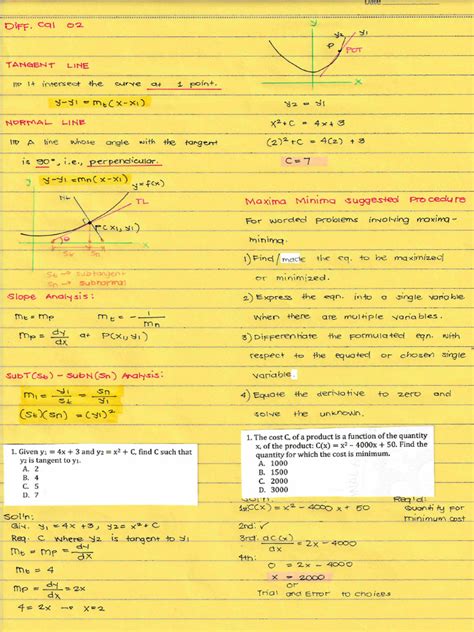 Date
DIFF. Cal 02
TANGENT LINE
It intersect the curve at 1 point.
y-y1 = mt(x-x1)
NORMAL LINE
A line whose angle with the tangent
is 90°, i.e., perpendicular.
y-y1 = mn(x-x1)
y
y=f(x)
NL
TL
P(x1, y1)
θ
x
St
Sn
St → subtangent
Sn → subnormal
Slope Analysis:
mt = mp
mt = - 1/mn
mp = dy/dx at P(x1, y1)
SubT(St) - SubN(Sn) Analysis:
m1 = y1/St = Sn/y1
(St)(Sn) = (y1)²
1. Given y₁ = 4x + 3 and y₂ = x² + C, find C such that
y₂ is tangent to y₁.
A. 2
B. 4
C. 5
D. 7
Sol'n:
Giv. y1 = 4x+3, y2 = x²+C
Req. C where y2 is tangent to y1
mt = mp = dy/dx
mt = 4
mp = dy/dx = 2x
4 = 2x → x=2
y
y2
y1
POT
x
y2 = y1
x²+C = 4x+3
(2)²+C = 4(2) + 3
C = 7
Maxima Minima Suggested Procedure
For worded problems involving maxima-
minima.
1) Find/made the eq. to be maximized
or minimized.
2) Express the eqn. into a single variable
when there are multiple variables.
3) Differentiate the formulated eqn. with
respect to the equated or chosen single
variable.
4) Equate the derivative to zero and
solve the unknown.
1. The cost C, of a product is a function of the quantity
x, of the product: C(x) = x² – 4000x + 50. Find the
quantity for which the cost is minimum.
A. 1000
B. 1500
C. 2000
D. 3000
Sol'n:
Req'd:
C(x) = x² - 4000x + 50
Quantity for
minimum cost
2nd: ✓
3rd: dC(x)/dx = 2x - 4000
4th:
0 = 2x - 4000
x = 2000
or
Trial and Error to choices